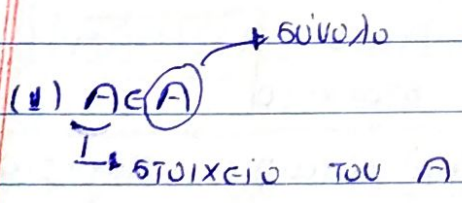 σύνολο
(1) A ∈ A
στοιχείο του A